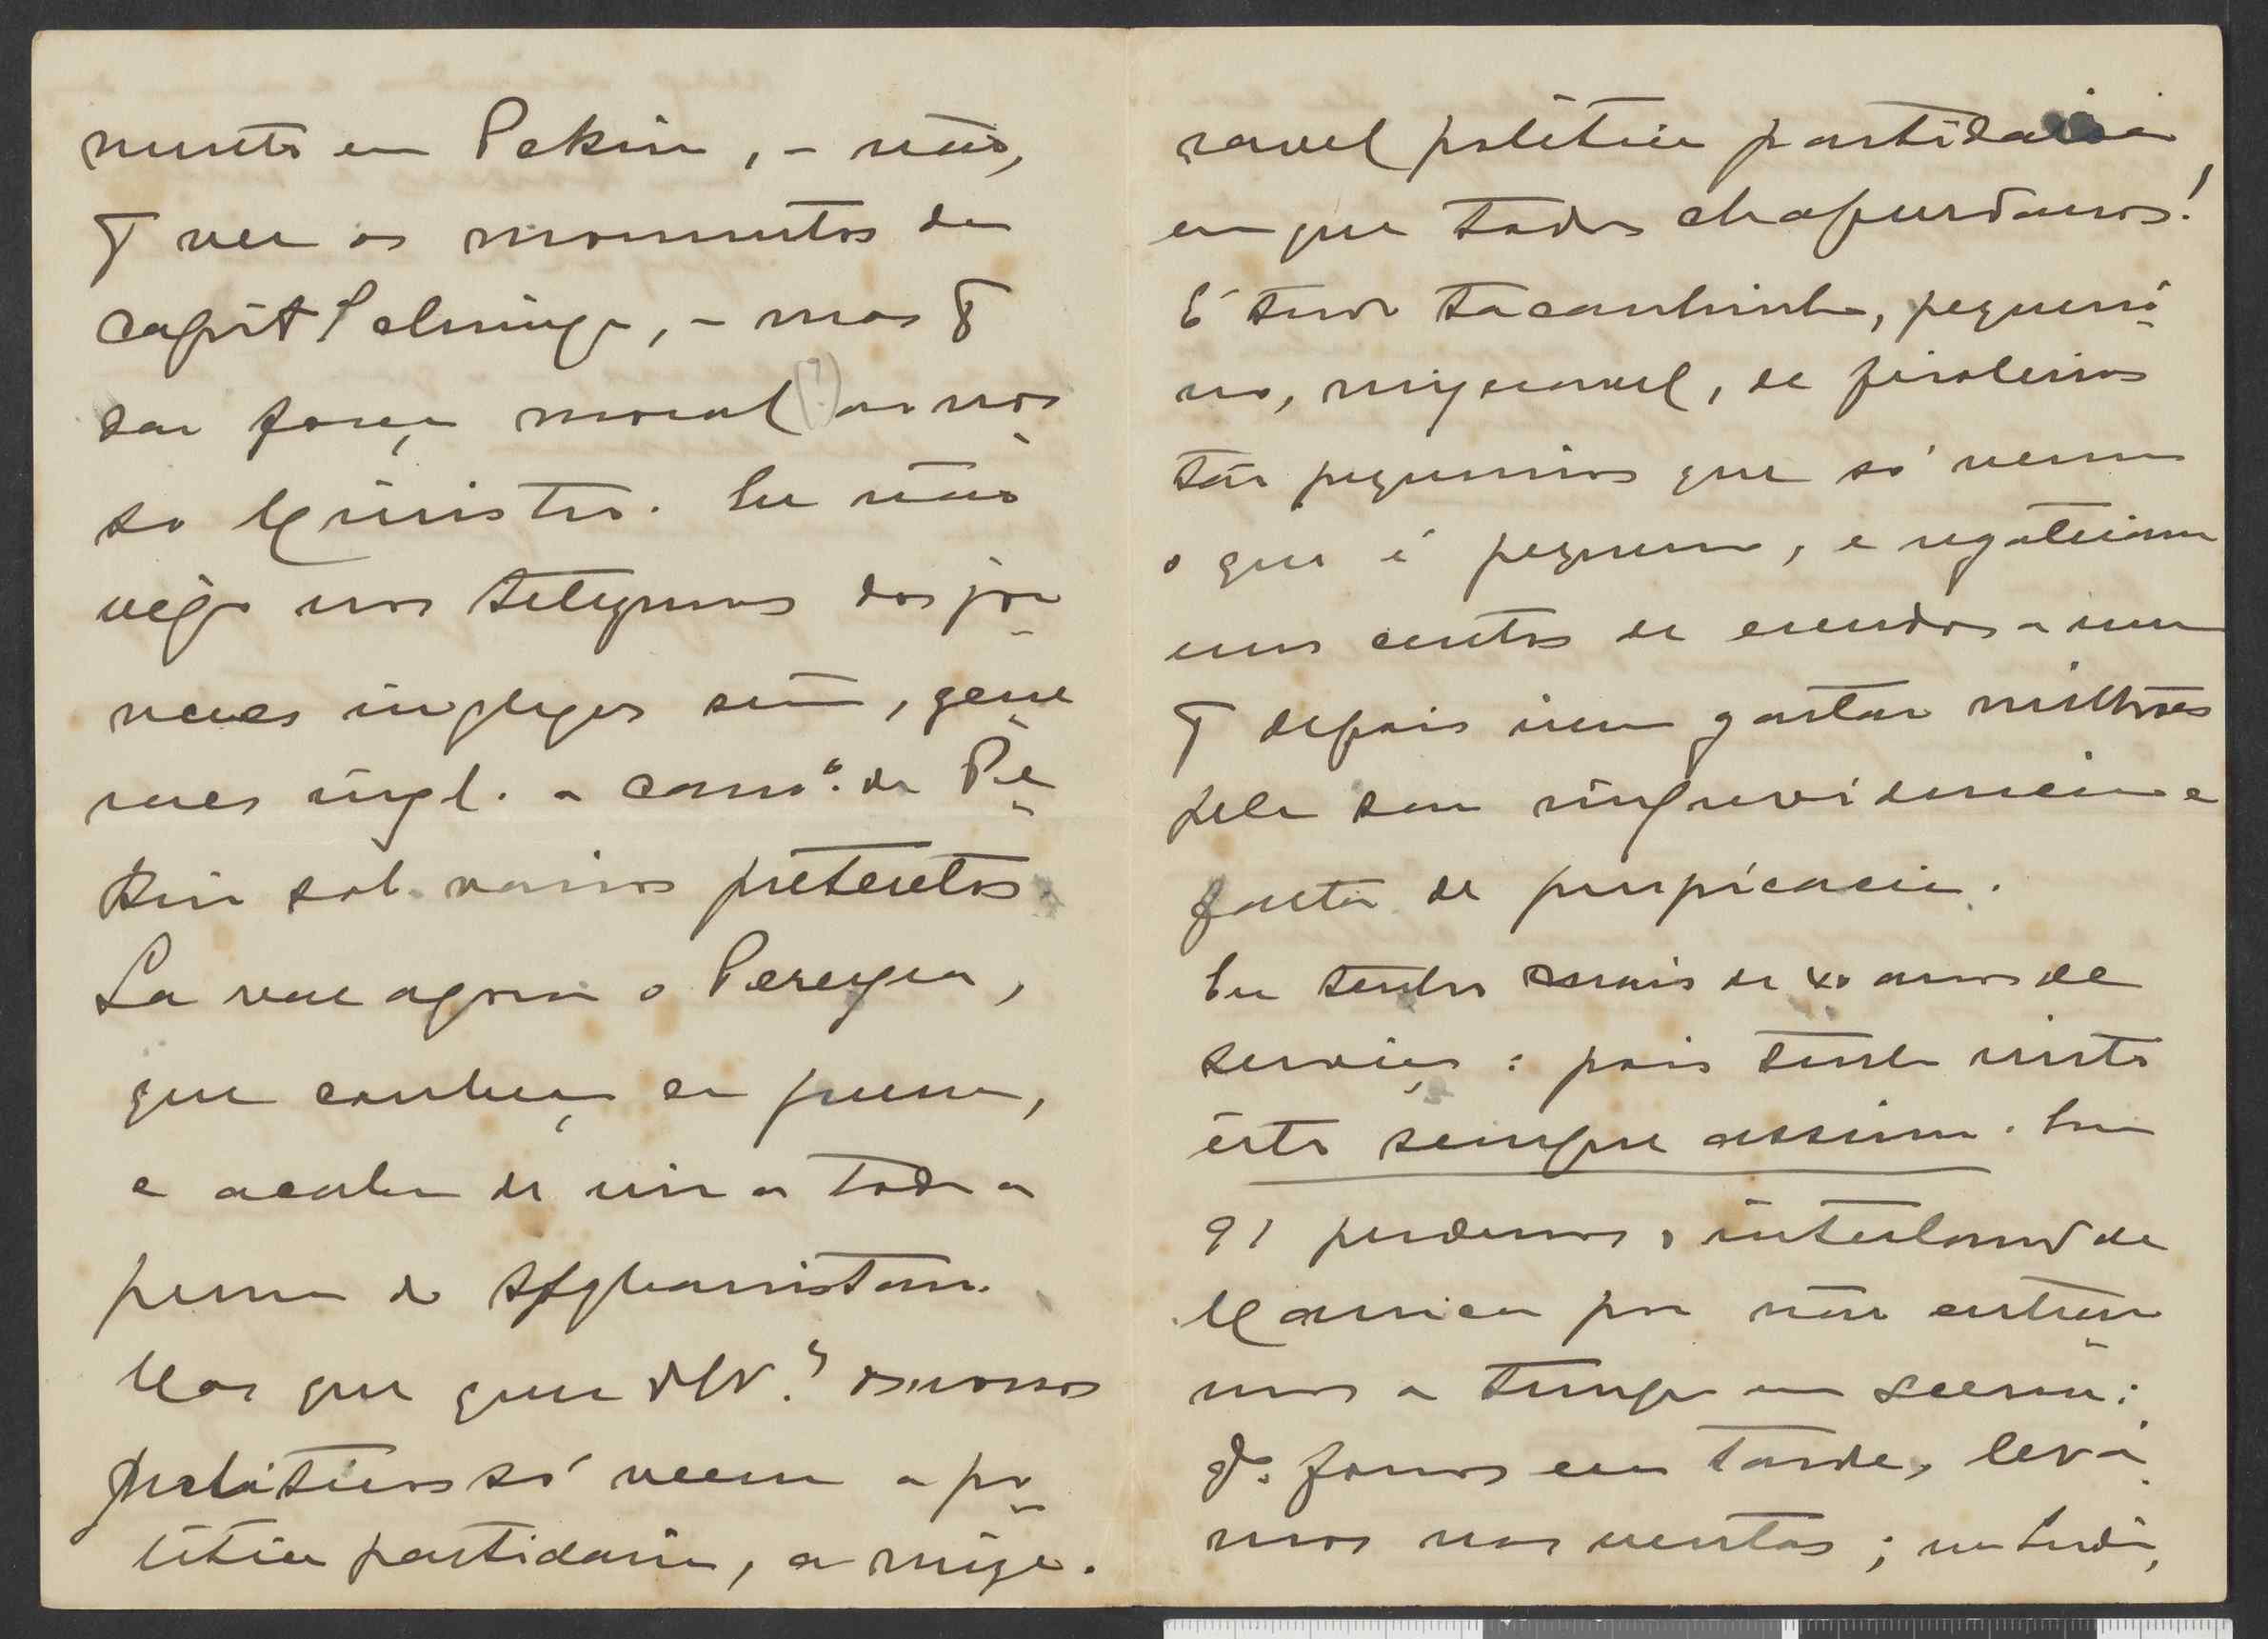 mento em Pekin, – não,
p.ª ver os monumentos da
capit. chineza, – mas p.ª
dar força moral (?) ao nos-
so Ministro. Eu não
vejo nos telegrmas dos jor-
naes inglezes sim, gene-
raes ingl. a cam.º de Pe-
kin sob varios pretextos
La vae agora o Pereyra,
que conheço em pessoa,
e acaba de vir a toda a
pressa do Afghanistan.
Mas que quer V.? os nossos
politicos só veem a po-
litica partidaria, a mize-
ravel politica partidaria,
em que todos chafurdamos!
É tudo tacanhinho, pequeni-
no, mizeravel, de
tão pequeninos que só veem
o que é pequeno, e regateiam
uns centos de escudos a um
p.ª depois irem gastar milhões
pela sua imprevidencia e
falta de perspicacia.
Eu tenho mais de 40 anos de
serviço: pois tenho visto
isto sempre assim. Em
91 perdemos o interland de
Manica por não entrar-
mos a tempo em scena;
q.do fomos era tarde, levá-
mos nas ventas; na India,